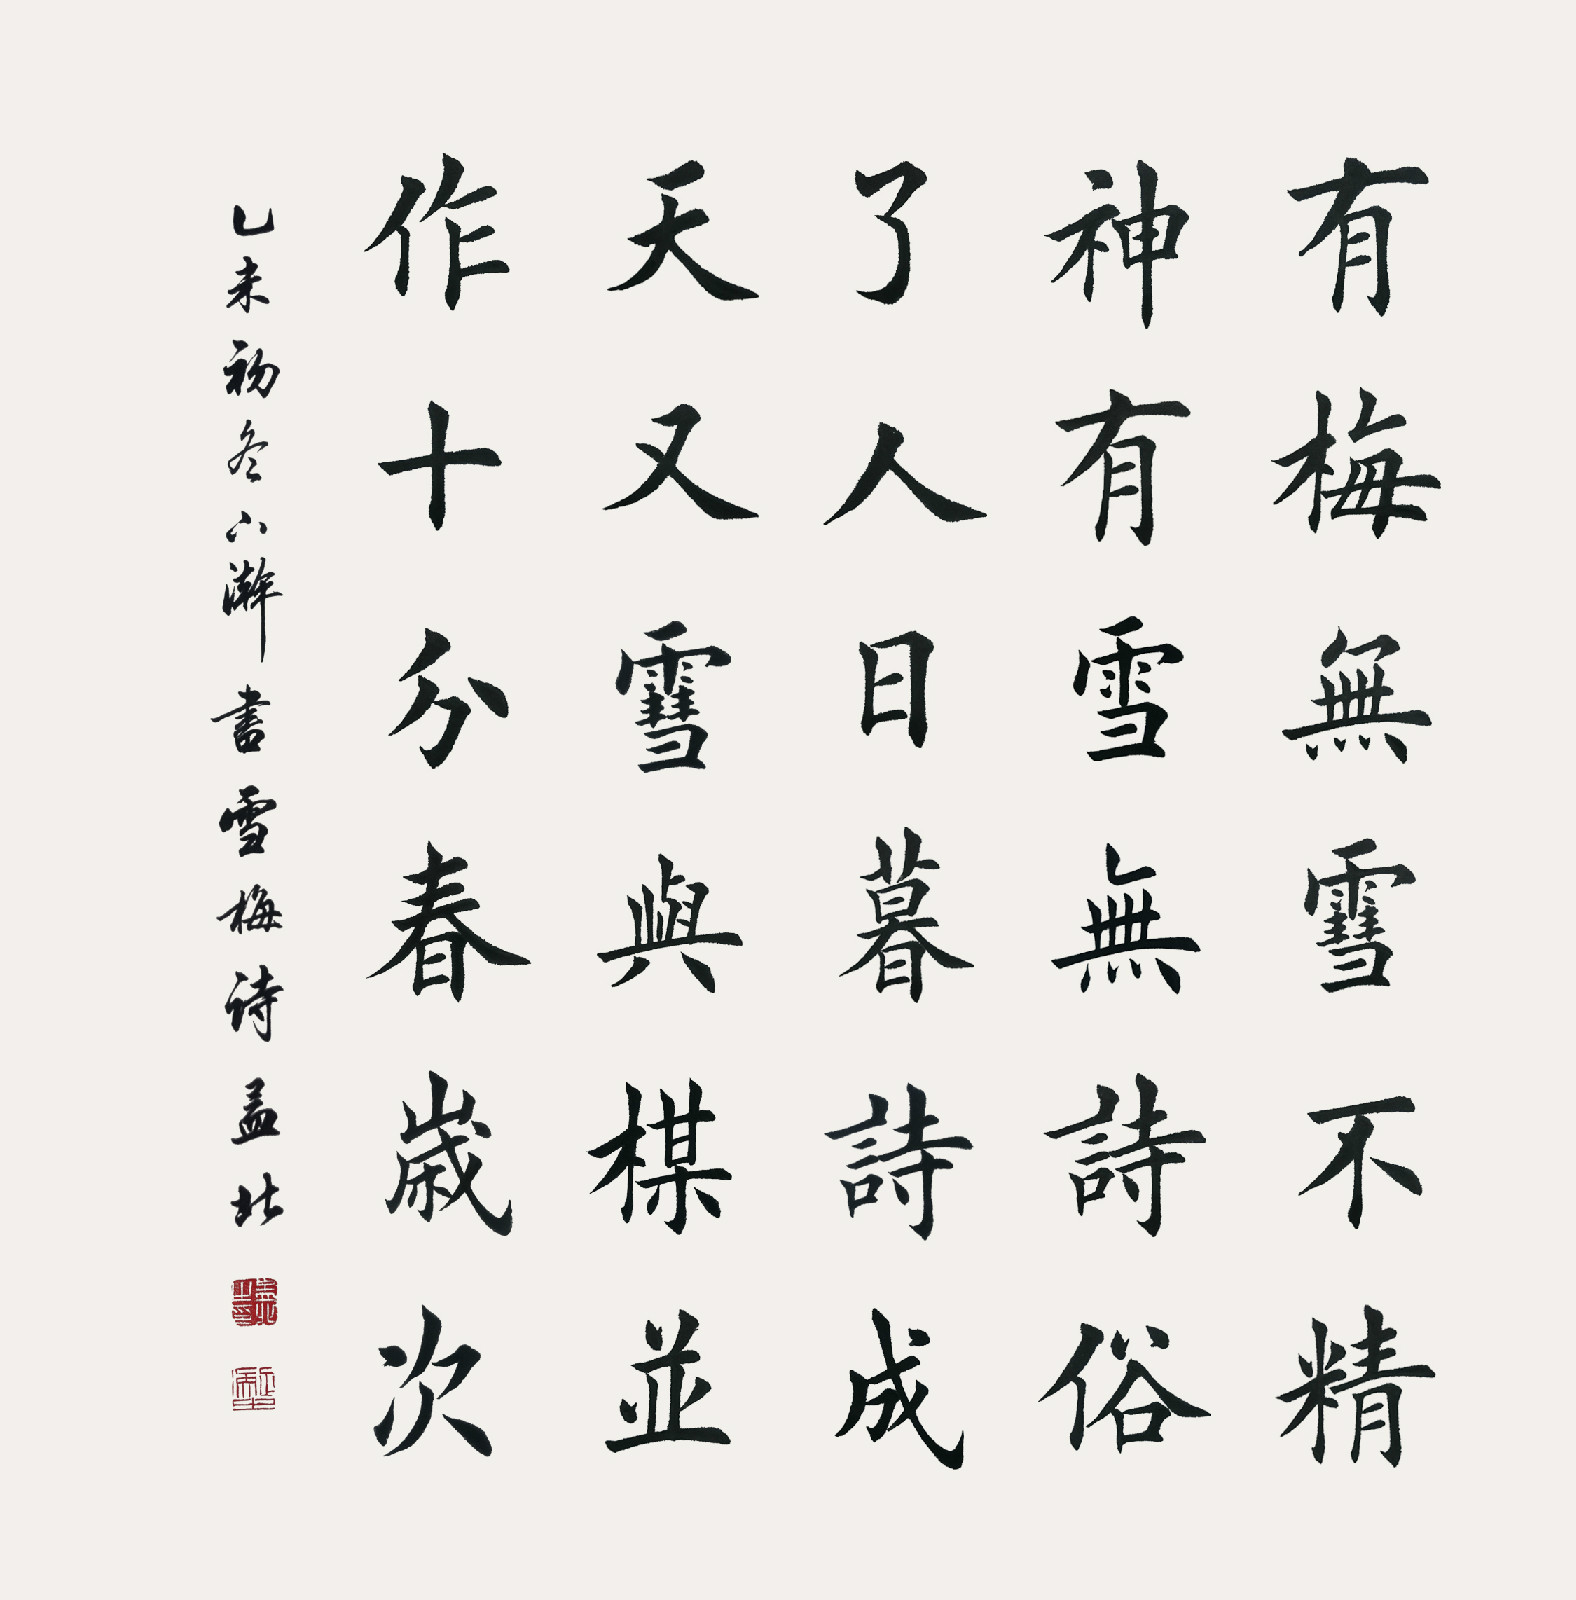 有梅無䨮不精
神有雪無詩俗
了人日暮詩成
天又䨮與楳並
作十分春歲次
乙未初冬瀚書雪梅詩北